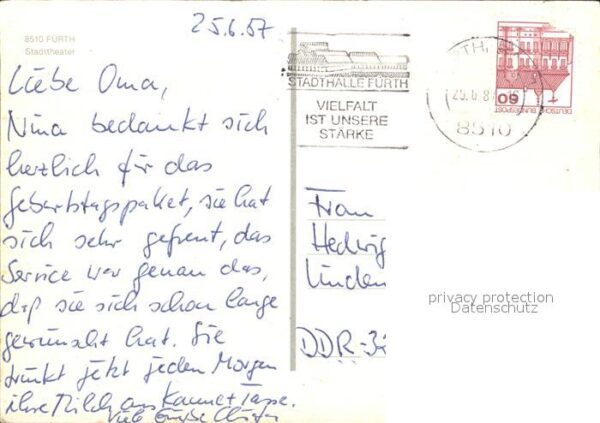 25.6.87
8510 FÜRTH
Stadttheater
Liebe Oma,
Nina bedankt sich
herzlich für das
Geburtstagspaket, sie hat
sich sehr gefreut, das
Service war genau das,
daß sie sich schon lange
gewünscht hat. Sie
trinkt jetzt jeden Morgen
ihre Milch aus Kanne + Tasse.
Viele Grüße
STADTHALLE FÜRTH
VIELFALT
IST UNSERE
STÄRKE
25.6.87
8510
60
DEUTSCHE BUNDESPOST
Frau
Hedwig
Linden
DDR-
privacy protection
Datenschutz